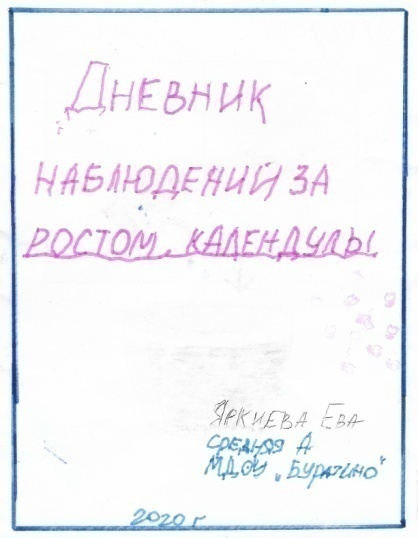 Дневник
наблюдений за
ростом календулы
Яркиева Ева
средняя А
МДОУ „Буратино"
2020 г